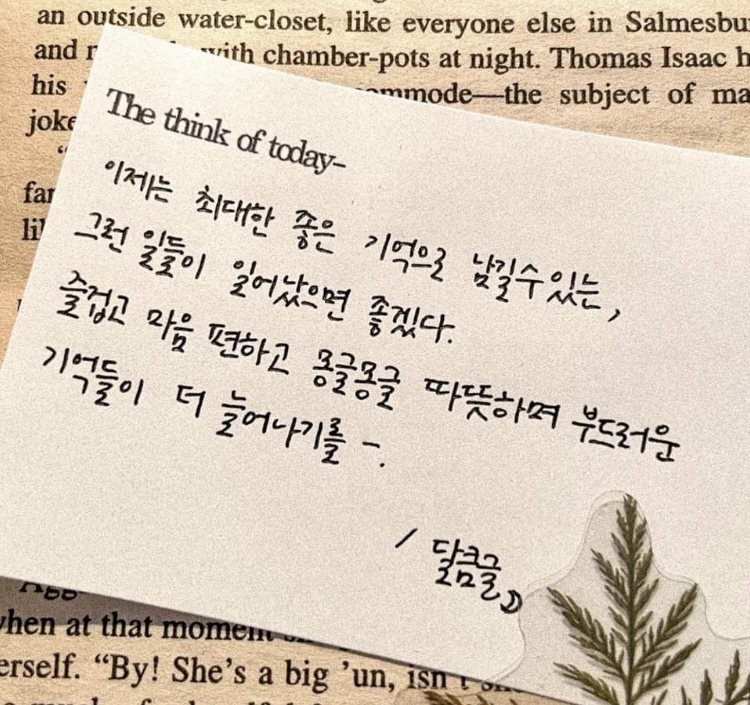 an outside water-closet, like everyone else in Salmesbu
and with chamber-pots at night. Thomas Isaac h
his mmode—the subject of ma
joke
“
far
The think of today-
이제는 최대한 좋은 기억으로 남길수있는,
그런 일들이 일어났으면 좋겠다.
즐겁고 마음 편하고 몽글몽글 따뜻하며 부드러운
기억들이 더 늘어나기를 -.
/ 달큼글
when at that moment
erself. “By! She’s a big ’un, isn’t